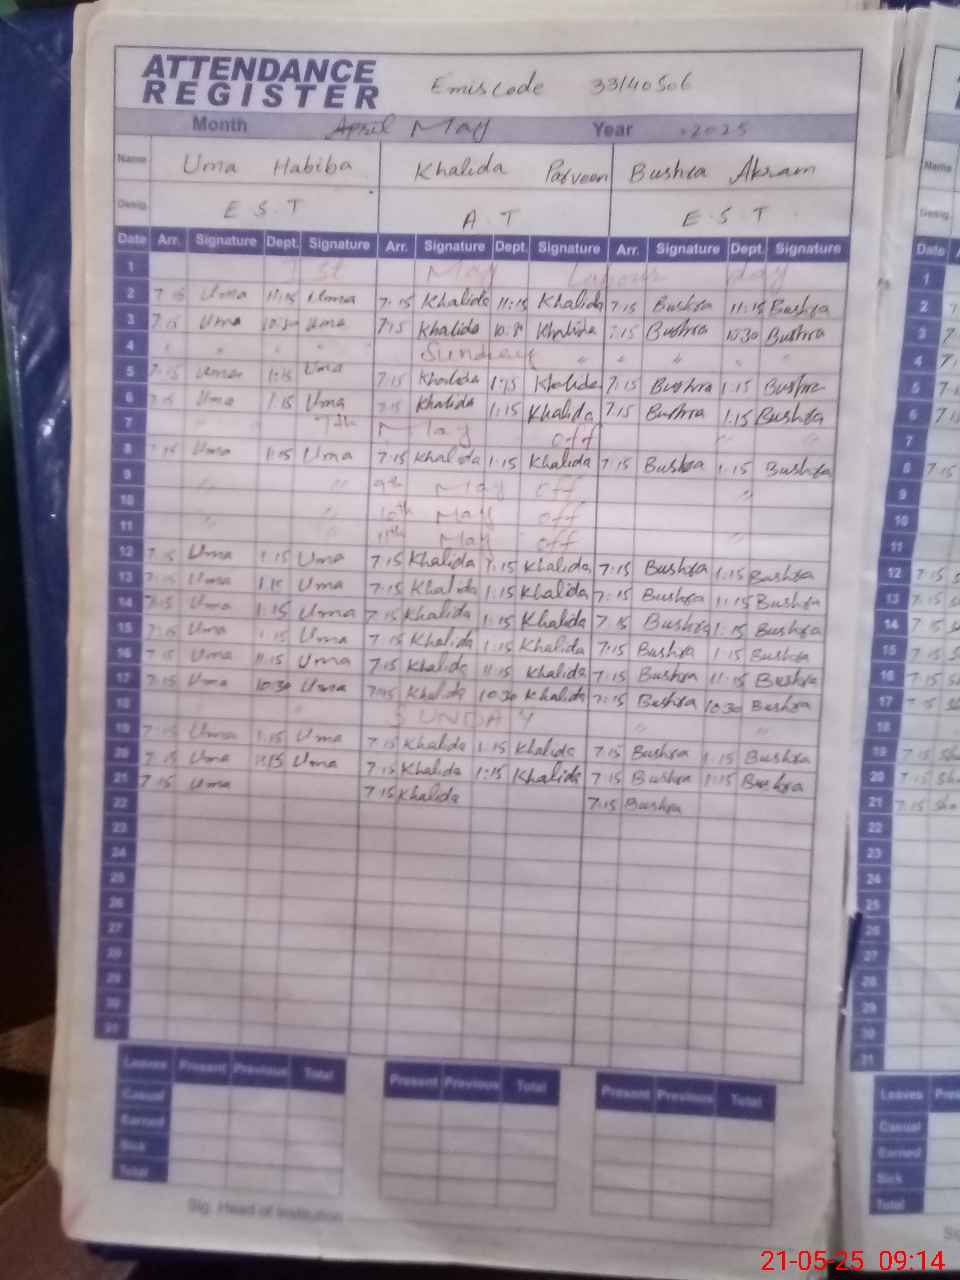 ATTENDANCE
REGISTER
Emiscode 33140506
Month April May Year 2025
Name Uma Habiba Khalida Parveen Bushra Akram
Desig. E S T A. T E. S. T
Date Arr. Signature Dept. Signature Arr. Signature Dept. Signature Arr. Signature Dept. Signature
1 1st May Labour day
2 7:15 Uma 11:15 Uma 7:15 Khalida 11:15 Khalida 7:15 Bushra 11:15 Bushra
3 7:15 Uma 10:30 Uma 7:15 Khalida Khalida 7:15 Bushra 10:30 Bushra
4 " " " " Sunday " " " " "
5 7:15 Uma 1:15 Uma 7:15 Khalida 1:15 Khalida 7:15 Bushra 1:15 Bushra
6 7:15 Uma 1:15 Uma 7:15 Khalida 1:15 Khalida 7:15 Bushra 1:15 Bushra
7 7th May off " "
8 7:15 Uma 1:15 Uma 7:15 Khalida 1:15 Khalida 7:15 Bushra 1:15 Bushra
9 " " 9th May off "
10 " " 10th May off
11 " " 11th May off
12 7:15 Uma 1:15 Uma 7:15 Khalida 1:15 Khalida 7:15 Bushra 1:15 Bushra
13 7:15 Uma 1:15 Uma 7:15 Khalida 1:15 Khalida 7:15 Bushra 1:15 Bushra
14 7:15 Uma 1:15 Uma 7:15 Khalida 1:15 Khalida 7:15 Bushra 1:15 Bushra
15 7:15 Uma 1:15 Uma 7:15 Khalida 1:15 Khalida 7:15 Bushra 1:15 Bushra
16 7:15 Uma 11:15 Uma 7:15 Khalida 11:15 Khalida 7:15 Bushra 11:15 Bushra
17 7:15 Uma 10:30 Uma 7:15 Khalida 10:30 Khalida 7:15 Bushra 10:30 Bushra
18 SUNDAY " "
19 7:15 Uma 1:15 Uma 7:15 Khalida 1:15 Khalida 7:15 Bushra 1:15 Bushra
20 7:15 Uma 1:15 Uma 7:15 Khalida 1:15 Khalida 7:15 Bushra 1:15 Bushra
21 7:15 Uma 7:15 Khalida 7:15 Bushra
22
23
24
25
26
27
28
29
30
31
Leaves Present Previous Total Present Previous Total Present Previous Total
Casual
Earned
Sick
Total
Sig. Head of Institution
Name
Desig.
Date
1
2 7
3 7
4 7.
5 7:1
6 7:1
7
8 7:15
9
10
11
12 7:15
13 7:15
14 7:15
15 7:15
16 7:15
17 7:15
18
19 7:15 Sha
20 7:15 Sha
21 7:15 Sha
22
23
24
25
26
27
28
29
30
31
Leaves Pres
Casual
Earned
Sick
Total
21-05-25 09:14